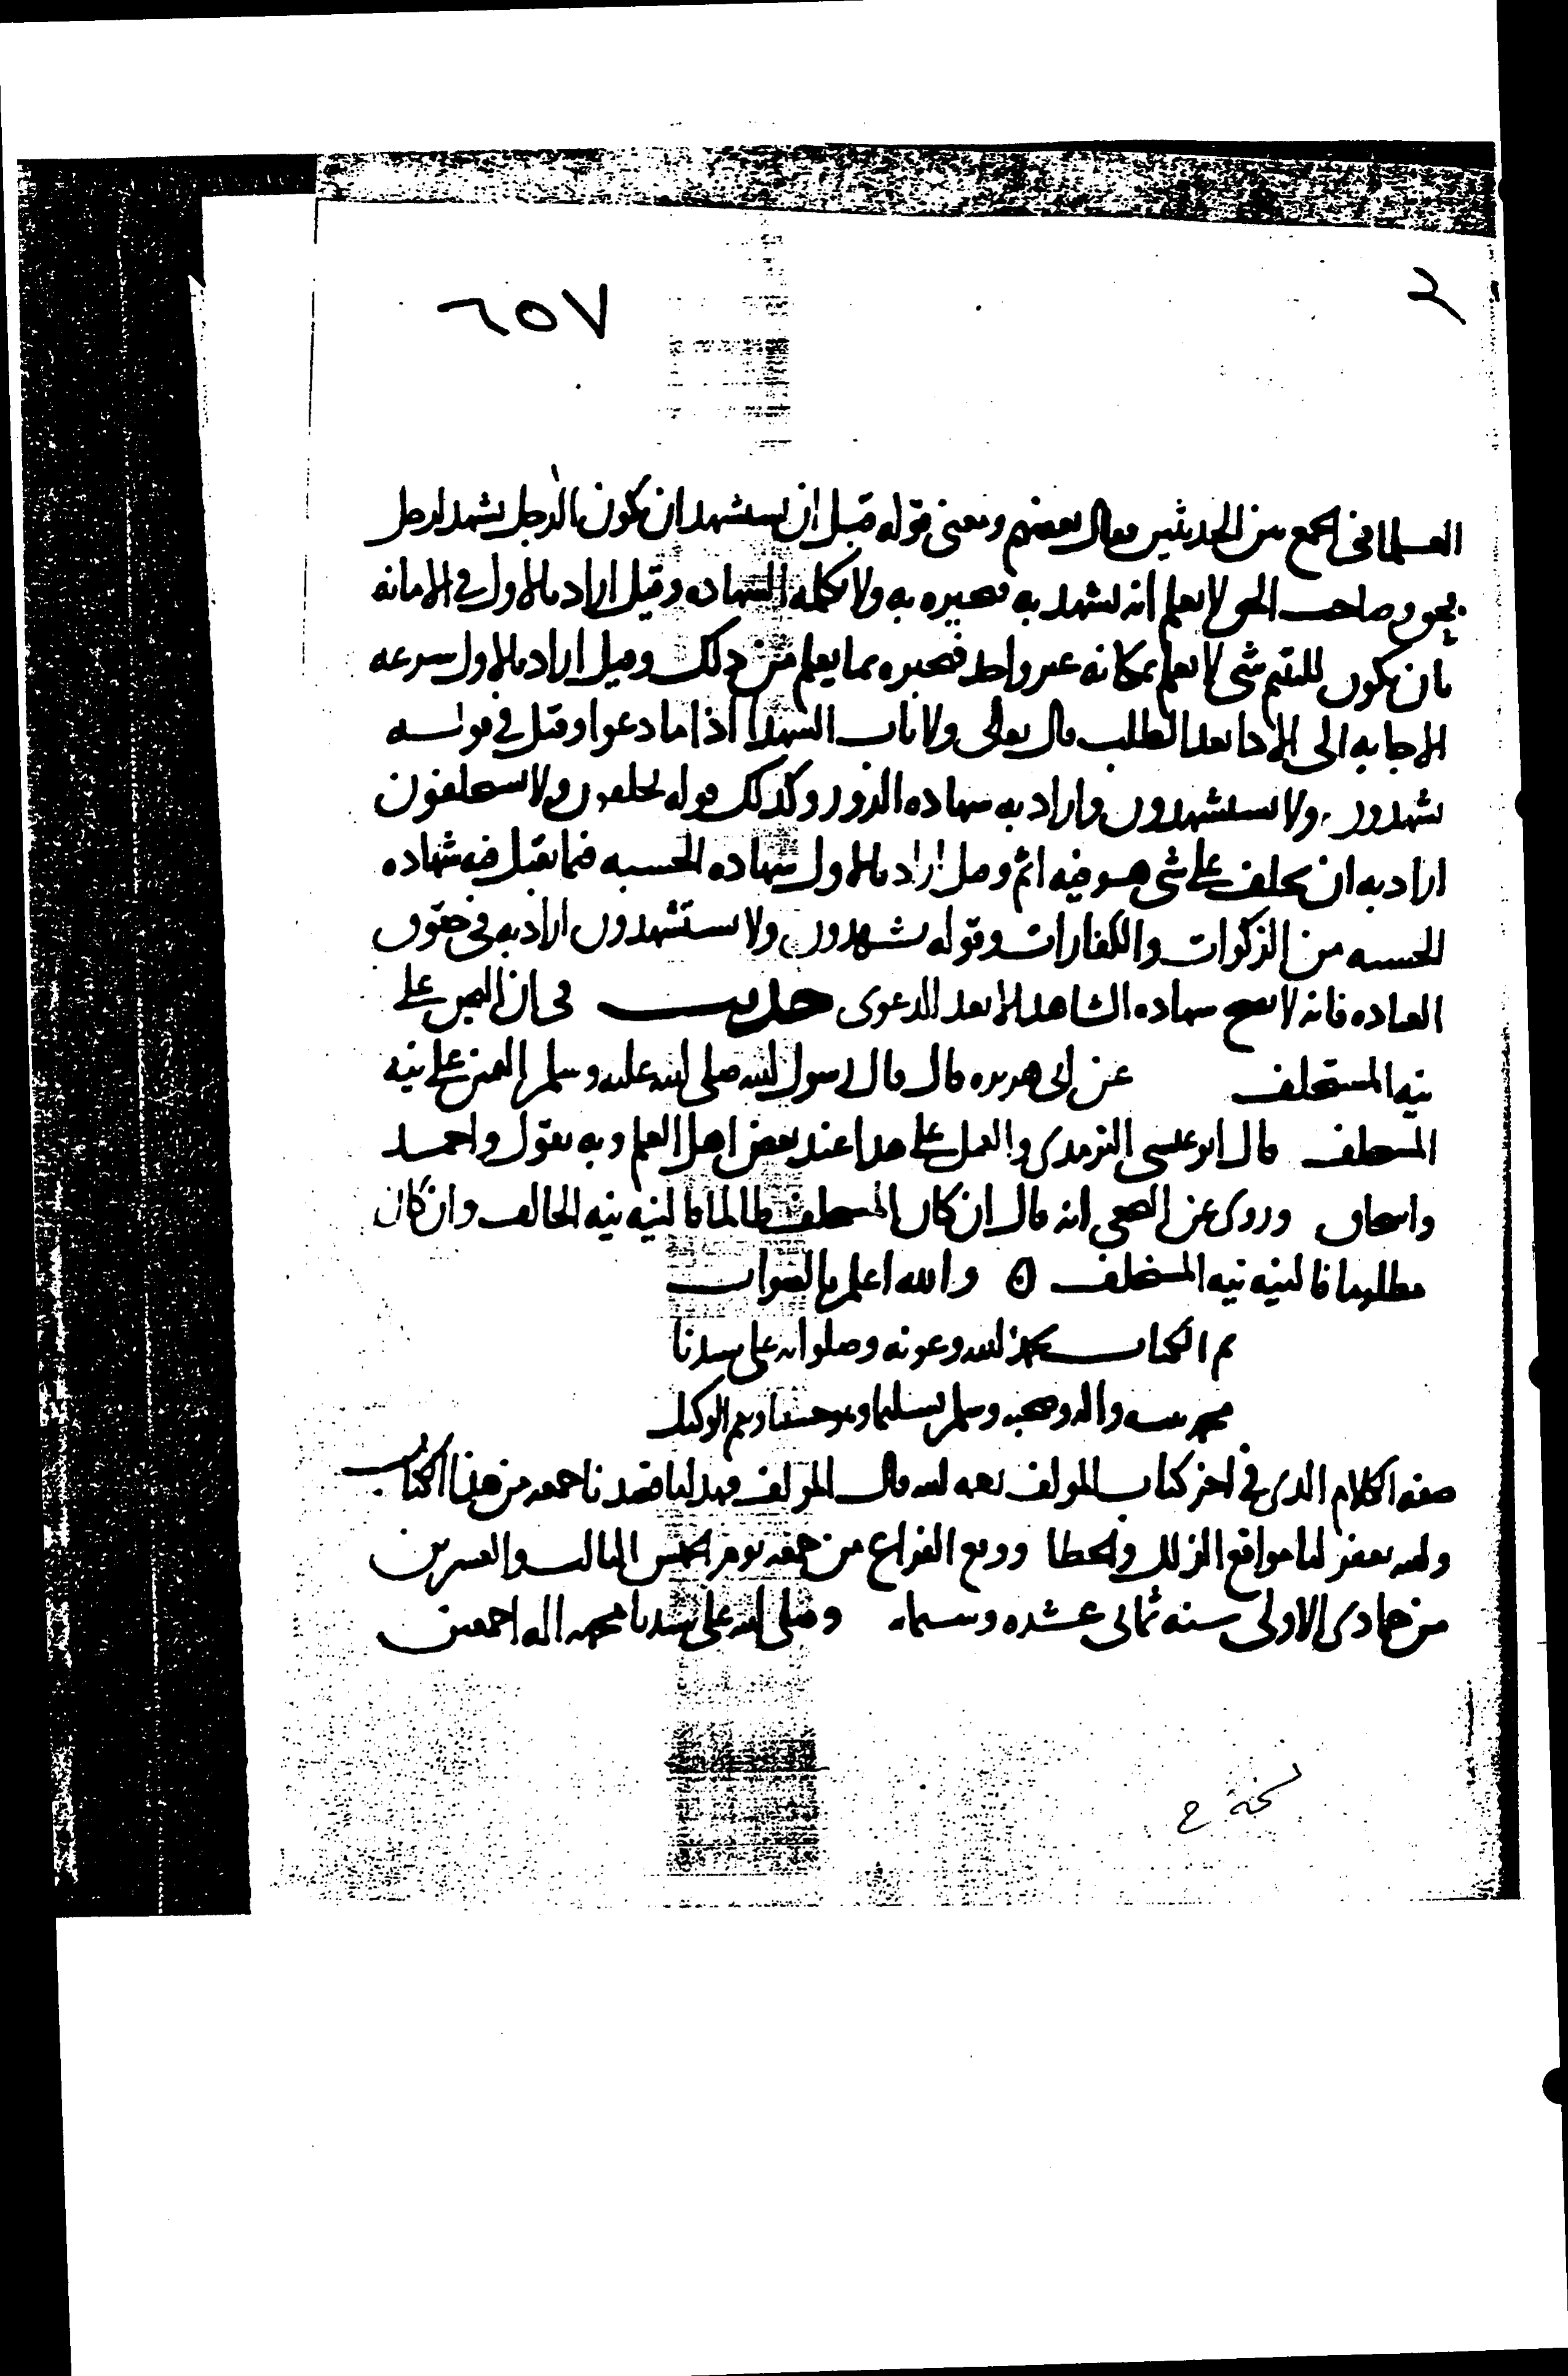 ٦٥٧
العلما في الجمع بين الحديثين فقال بعضهم ومعنى قوله قبل ان يستشهد ان يكون الرجل يشهد لرجل
بحق وصاحب الحق لا يعلم انه يشهد به فيخبره به ولا يكلمه الشهاده وقيل اراد بالاول في الامانه
بان يكون لليتيم شي لا يعلم بمكانه غير واحد فيخبره بما يعلم من ذلك وقيل اراد بالاول سرعه
الاجابه الى الادا بعد الطلب قال تعالى ولا ياب الشهدا اذا ما دعوا وقيل في قوله
يشهدون ولا يستشهدون واراد به شهاده الزور وكذلك قوله يحلفون ولا يستحلفون
اراد به ان يحلف على شي هو فيه اثم وقيل اراد بالاول شهاده الحسبه فيما يقبل فيه شهاده
الحسبه من الزكوات والكفارات وقوله يشهدون ولا يستشهدون اراد به في حقوق
العباده فانه لا تصح شهاده الشاهد الا بعد الدعوى حديث في ان اليمين على
نيه المستحلف عن ابي هريره قال قال رسول الله صلى الله عليه وسلم اليمين على نيه
المستحلف قال ابو عيسى الترمذي والعمل على هذا عند بعض اهل العلم وبه يقول واحمد
واسحاق وروى عن النخعي انه قال ان كان المستحلف ظالما فالنيه نيه الحالف وان كان
مظلوما فالنيه نيه المستحلف ه والله اعلم بالصواب
تم الكتاب بحمد الله وعونه وصلواته على سيدنا
محمد نبيه واله وصحبه وسلم تسليما وهو حسبنا ونعم الوكيل
صفه الكلام الذي في اخر كتاب المولف رحمه الله قال المولف فهذا ما قصدنا جمعه من هذا الكتاب
والله يغفر لنا مواقع الزلل والخطا ووقع الفراغ من جمعه يوم الخميس الثالث والعشرين
من جمادى الاولى سنه ثماني عشره وستمايه وصلى الله على سيدنا محمد واله اجمعين
نسخة ح